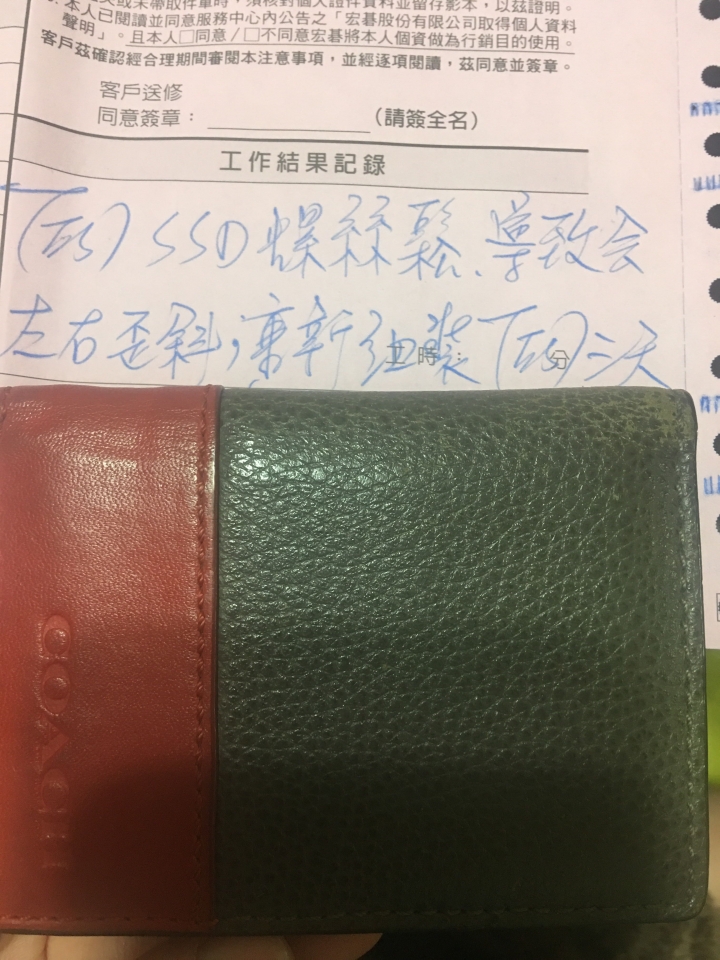 本人已閱讀並同意服務中心內公告之「宏碁股份有限公司取得個人資料
聲明」。且本人□同意/□不同意宏碁將本人個資做為行銷目的使用。
客戶茲確認經合理期間審閱本注意事項，並經逐項閱讀，茲同意並簽章。
客戶送修
同意簽章：（請簽全名）
工作結果記錄
SSD螺絲鬆、導致会
左右歪斜，重新组裝 二天
工時： 分
COACH